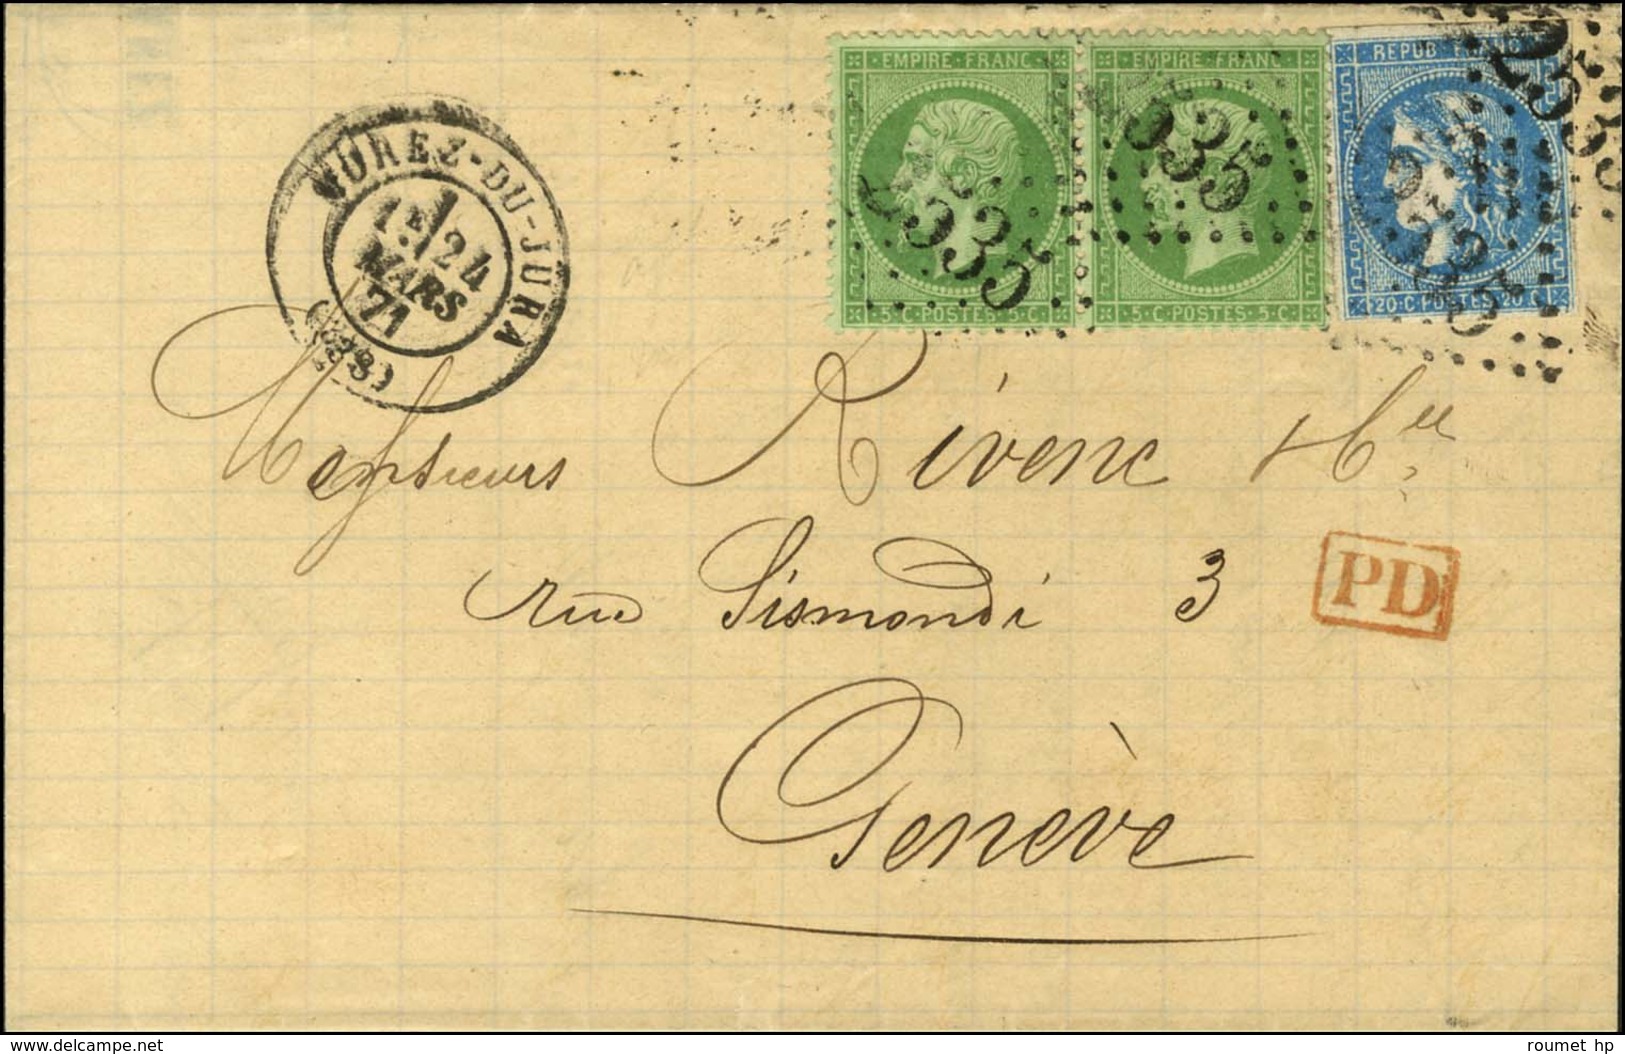 EMPIRE·FRANC
EMPIRE·FRANC
REPUB·FRANC
2535
2535
5·C·POSTES·5·C
5·C·POSTES·5·C
20·C·POSTES·20·C
MOREZ-DU-JURA
1E/
24
MARS
71
(38)
Messieurs Rivenc &
rue Sismondi 3
PD
Genève
www.delcampe.net
roumet hp